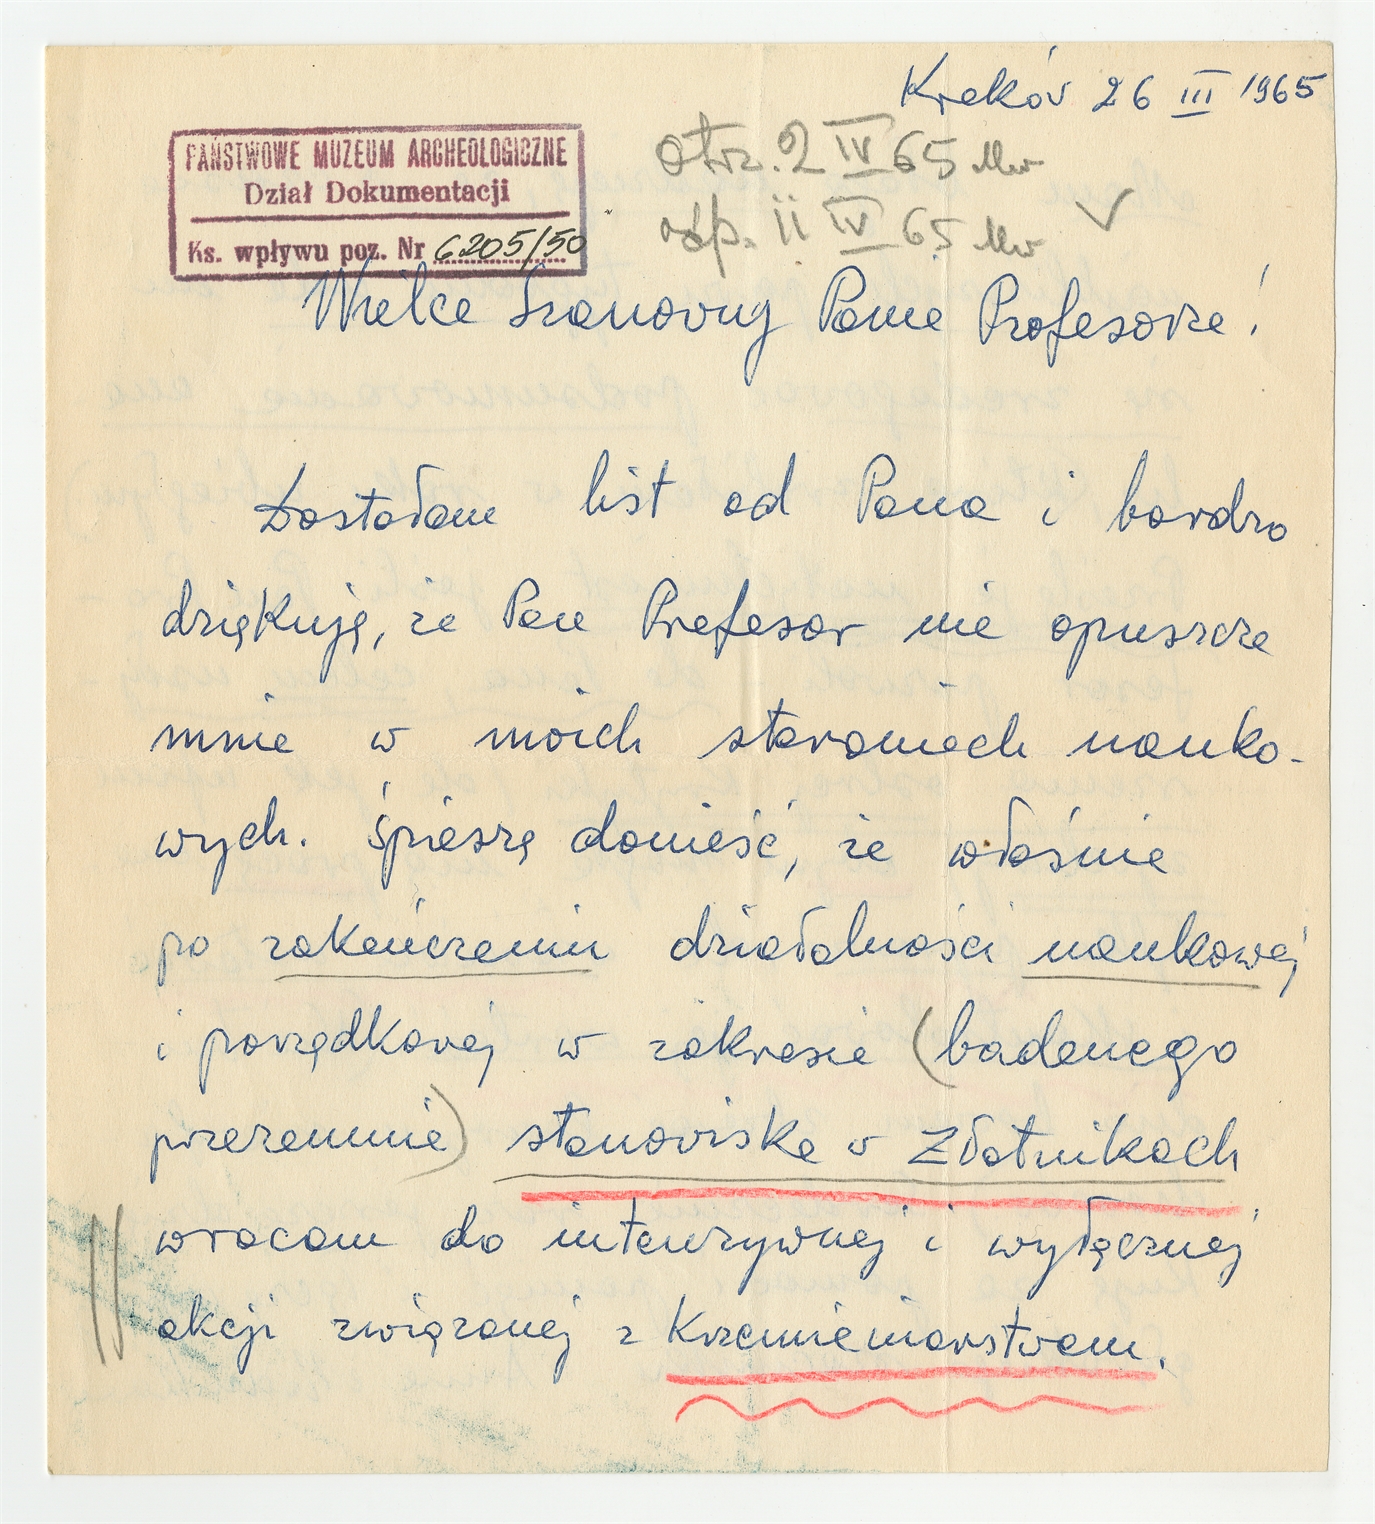 Kraków 26 III 1965
PAŃSTWOWE MUZEUM ARCHEOLOGICZNE
Dział Dokumentacji
Ks. wpływu poz. Nr 6205/50
otrz. 2 IV 65
odp. ii IV 65
Wielce Szanowny Panie Profesorze!
Dostałam list od Pana i bardzo
dziękuję, że Pan Profesor nie opuszcza
mnie w moich staraniach nauko-
wych. Śpieszę donieść, że właśnie
po zakończeniu działalności naukowej
i porządkowej w zakresie (badanego
przezemnie) stanowiska w Złotnikach
wracam do intenzywnej i wyłącznej
akcji związanej z Krzemieniarstwem.